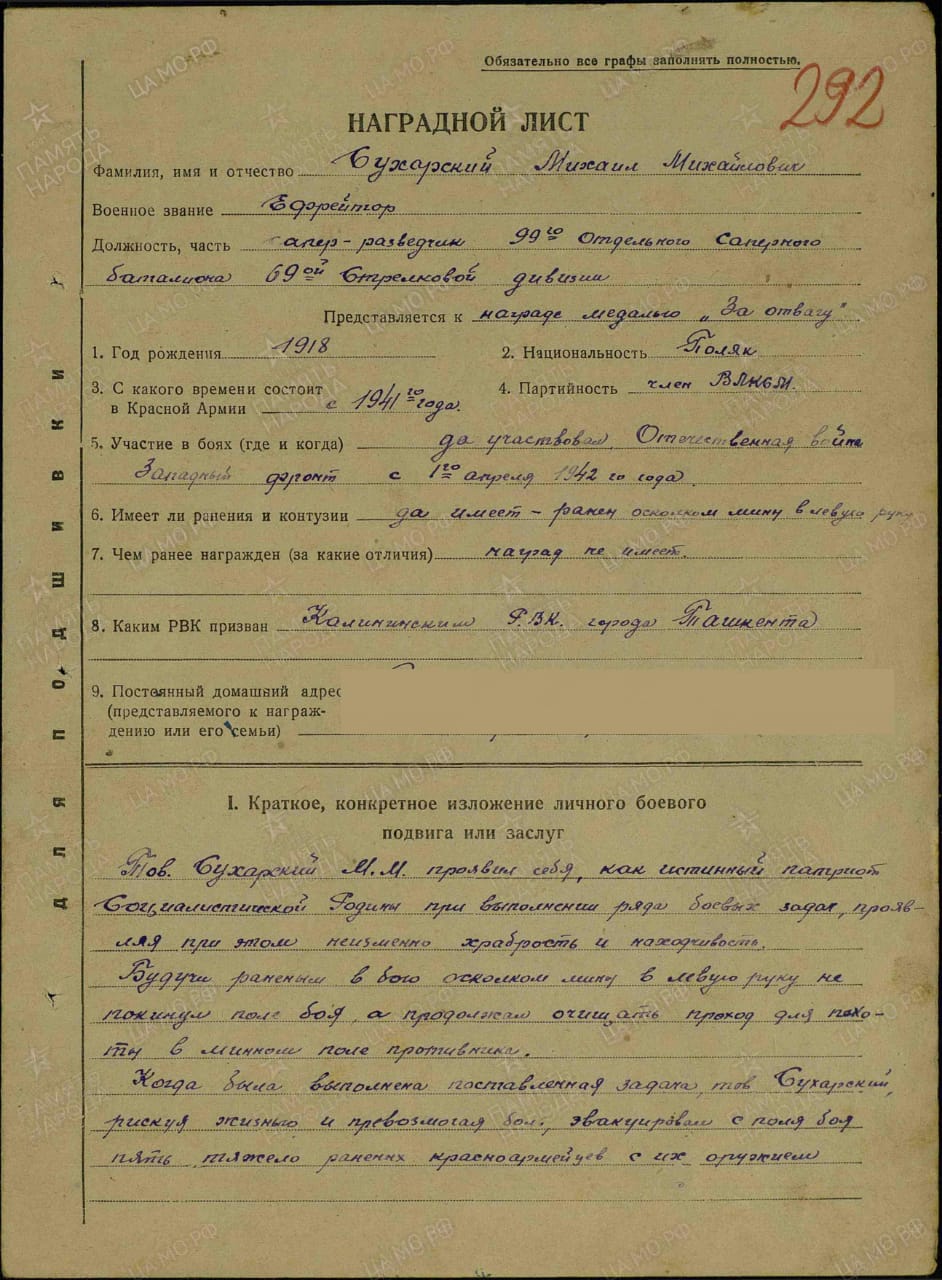 Обязательно все графы заполнять полностью.
292
НАГРАДНОЙ ЛИСТ
Фамилия, имя и отчество Сухарский Михаил Михайлович
Военное звание Ефрейтор
Должность, часть сапер-разведчик 99го Отдельного Саперного
баталиона 69ой Стрелковой дивизии
Представляется к награде медалью „За отвагу"
1. Год рождения 1918 2. Национальность Поляк
3. С какого времени состоит 4. Партийность член ВЛКСМ.
в Красной Армии с 1941го года.
5. Участие в боях (где и когда) да участвовал, Отечественная война
Западный фронт с 1го апреля 1942 го года.
6. Имеет ли ранения и контузии да имеет - ранен осколком мины в левую руку
7. Чем ранее награжден (за какие отличия) наград не имеет.
8. Каким РВК призван Калининским Р.В.К. города Ташкента
9. Постоянный домашний адрес
(представляемого к награж-
дению или его семьи)
I. Краткое, конкретное изложение личного боевого
подвига или заслуг
Тов. Сухарский М.М. проявил себя, как истинный патриот
Социалистической Родины при выполнении ряда боевых задач, прояв-
ляя при этом неизменно храбрость и находчивость.
Будучи раненым в бою осколком мины в левую руку не
покинул поле боя, а продолжал очищать проход для пехо-
ты в минном поле противника.
Когда была выполнена поставленная задача, тов Сухарский,
рискуя жизнью и превозмогая боль, эвакуировал с поля боя
пять тяжело раненых красноармейцев с их оружием
Для подшивки
ПАМЯТЬ НАРОДА
ЦАМО.РФ